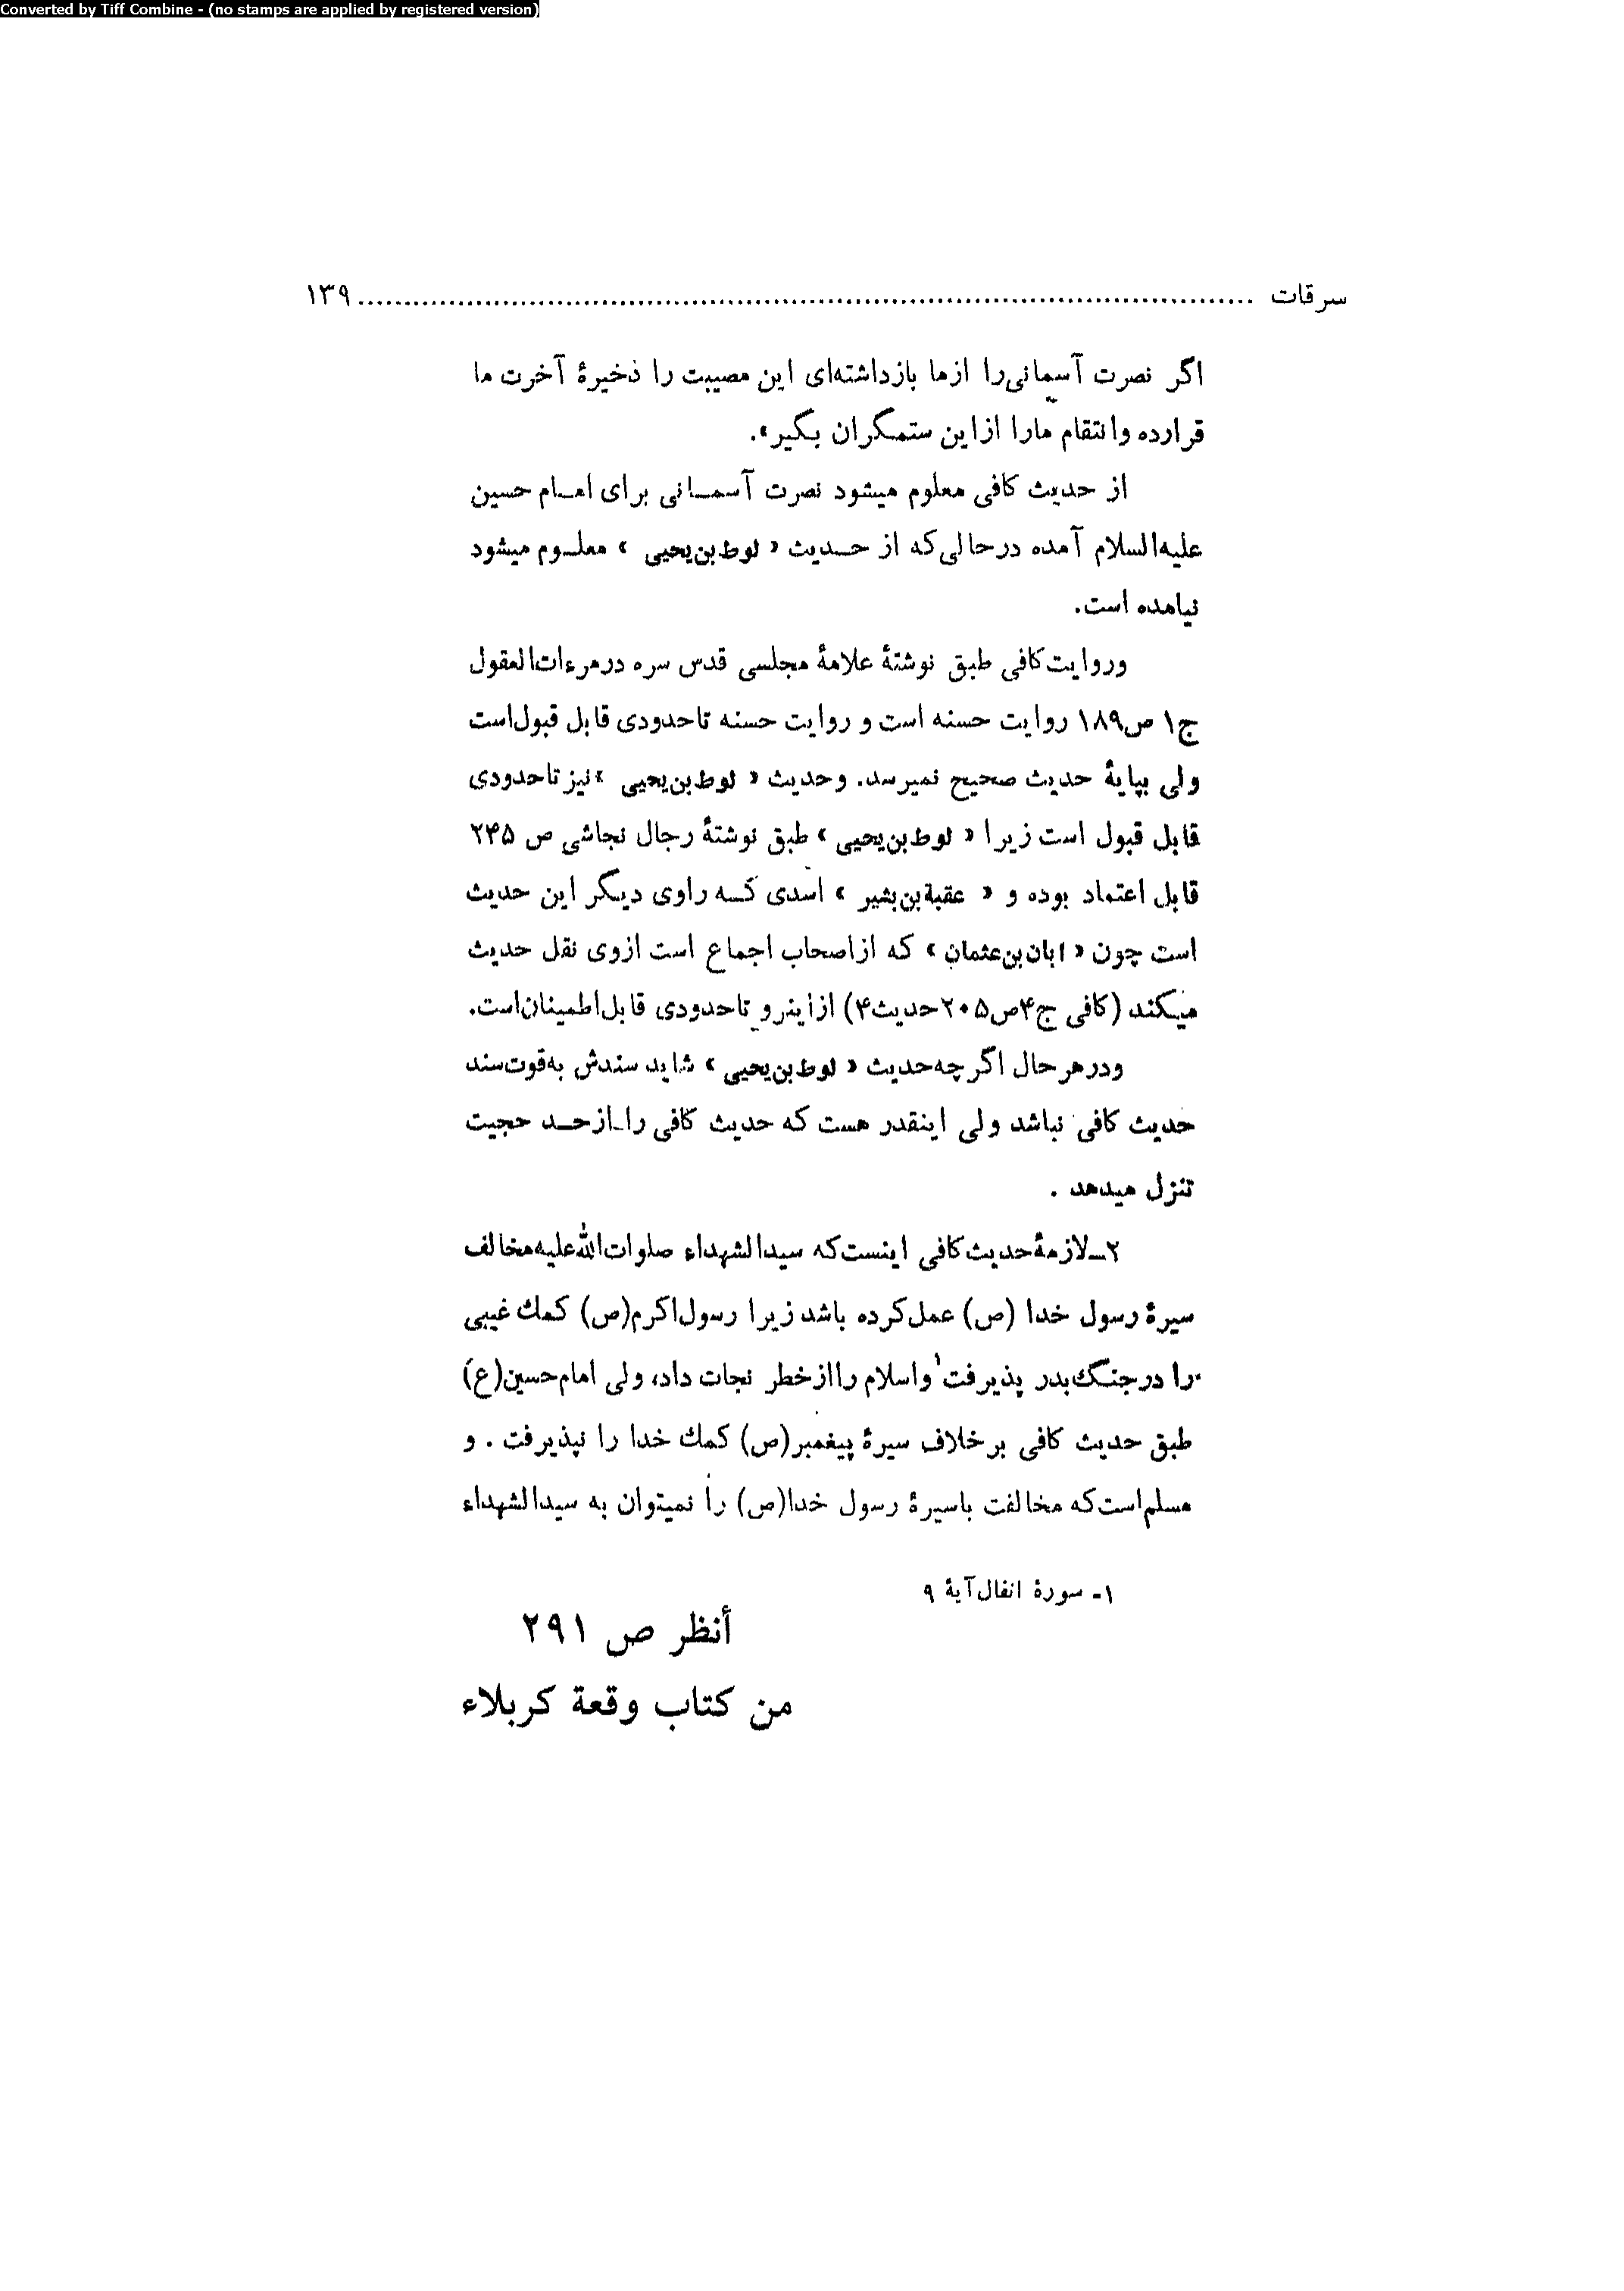 Converted by Tiff Combine - (no stamps are applied by registered version)
سرقات ................................................................................................ ١٣٩
اگر نصرت آسمانی‌را ازما بازداشته‌ای این مصیبت را ذخیرهٔ آخرت ما
قرارده وانتقام مارا ازاین ستمگران بگیر».
از حدیث کافی معلوم میشود نصرت آسمـانی برای امـام حسین
علیه‌السلام آمده درحالی‌که از حـدیث « لوط‌بن‌یحیی » معلـوم میشود
نیامده است.
وروایت‌کافی طبق نوشتهٔ علامهٔ مجلسی قدس سره درمرءات‌العقول
ج۱ ص۱۸۹ روایت حسنه است و روایت حسنه تاحدودی قابل قبول‌است
ولی بپایهٔ حدیث صحیح نمیرسد. وحدیث « لوط‌بن‌یحیی »نیز تاحدودی
قابل قبول است زیرا « لوط‌بن‌یحیی » طبق نوشتهٔ رجال نجاشی ص ۲۴۵
قابل اعتماد بوده و « عقبةبن‌بشیر » اسدی کـه راوی دیگر این حدیث
است چون « ابان‌بن‌عثمان » که ازاصحاب اجماع است ازوی نقل حدیث
میکند (کافی ج۴ص۲۰۵حدیث۴) ازاینرو تاحدودی قابل‌اطمینان‌است.
ودرهرحال اگرچه‌حدیث « لوط‌بن‌یحیی » شاید سندش به‌قوت‌سند
حدیث کافی نباشد ولی اینقدر هست که حدیث کافی را ازحـد حجیت
تنزل میدهد .
۲ـ لازمهٔ‌حدیث‌کافی اینست‌که سیدالشهداء صلوات‌الله‌علیه‌مخالف
سیرهٔ رسول خدا (ص) عمل‌کرده باشد زیرا رسول‌اکرم(ص) کمك غیبی
را درجنگ‌بدر پذیرفت۱ واسلام رااز خطر نجات داد، ولی امام‌حسین(ع)
طبق حدیث کافی برخلاف سیرهٔ پیغمبر(ص) کمك خدا را نپذیرفت . و
مسلم‌است‌که مخالفت باسیرهٔ رسول خدا(ص) را نمیتوان به سیدالشهداء
۱- سورهٔ انفال‌آیهٔ ۹
أنظر ص ٢٩١
من كتاب وقعة كربلاء